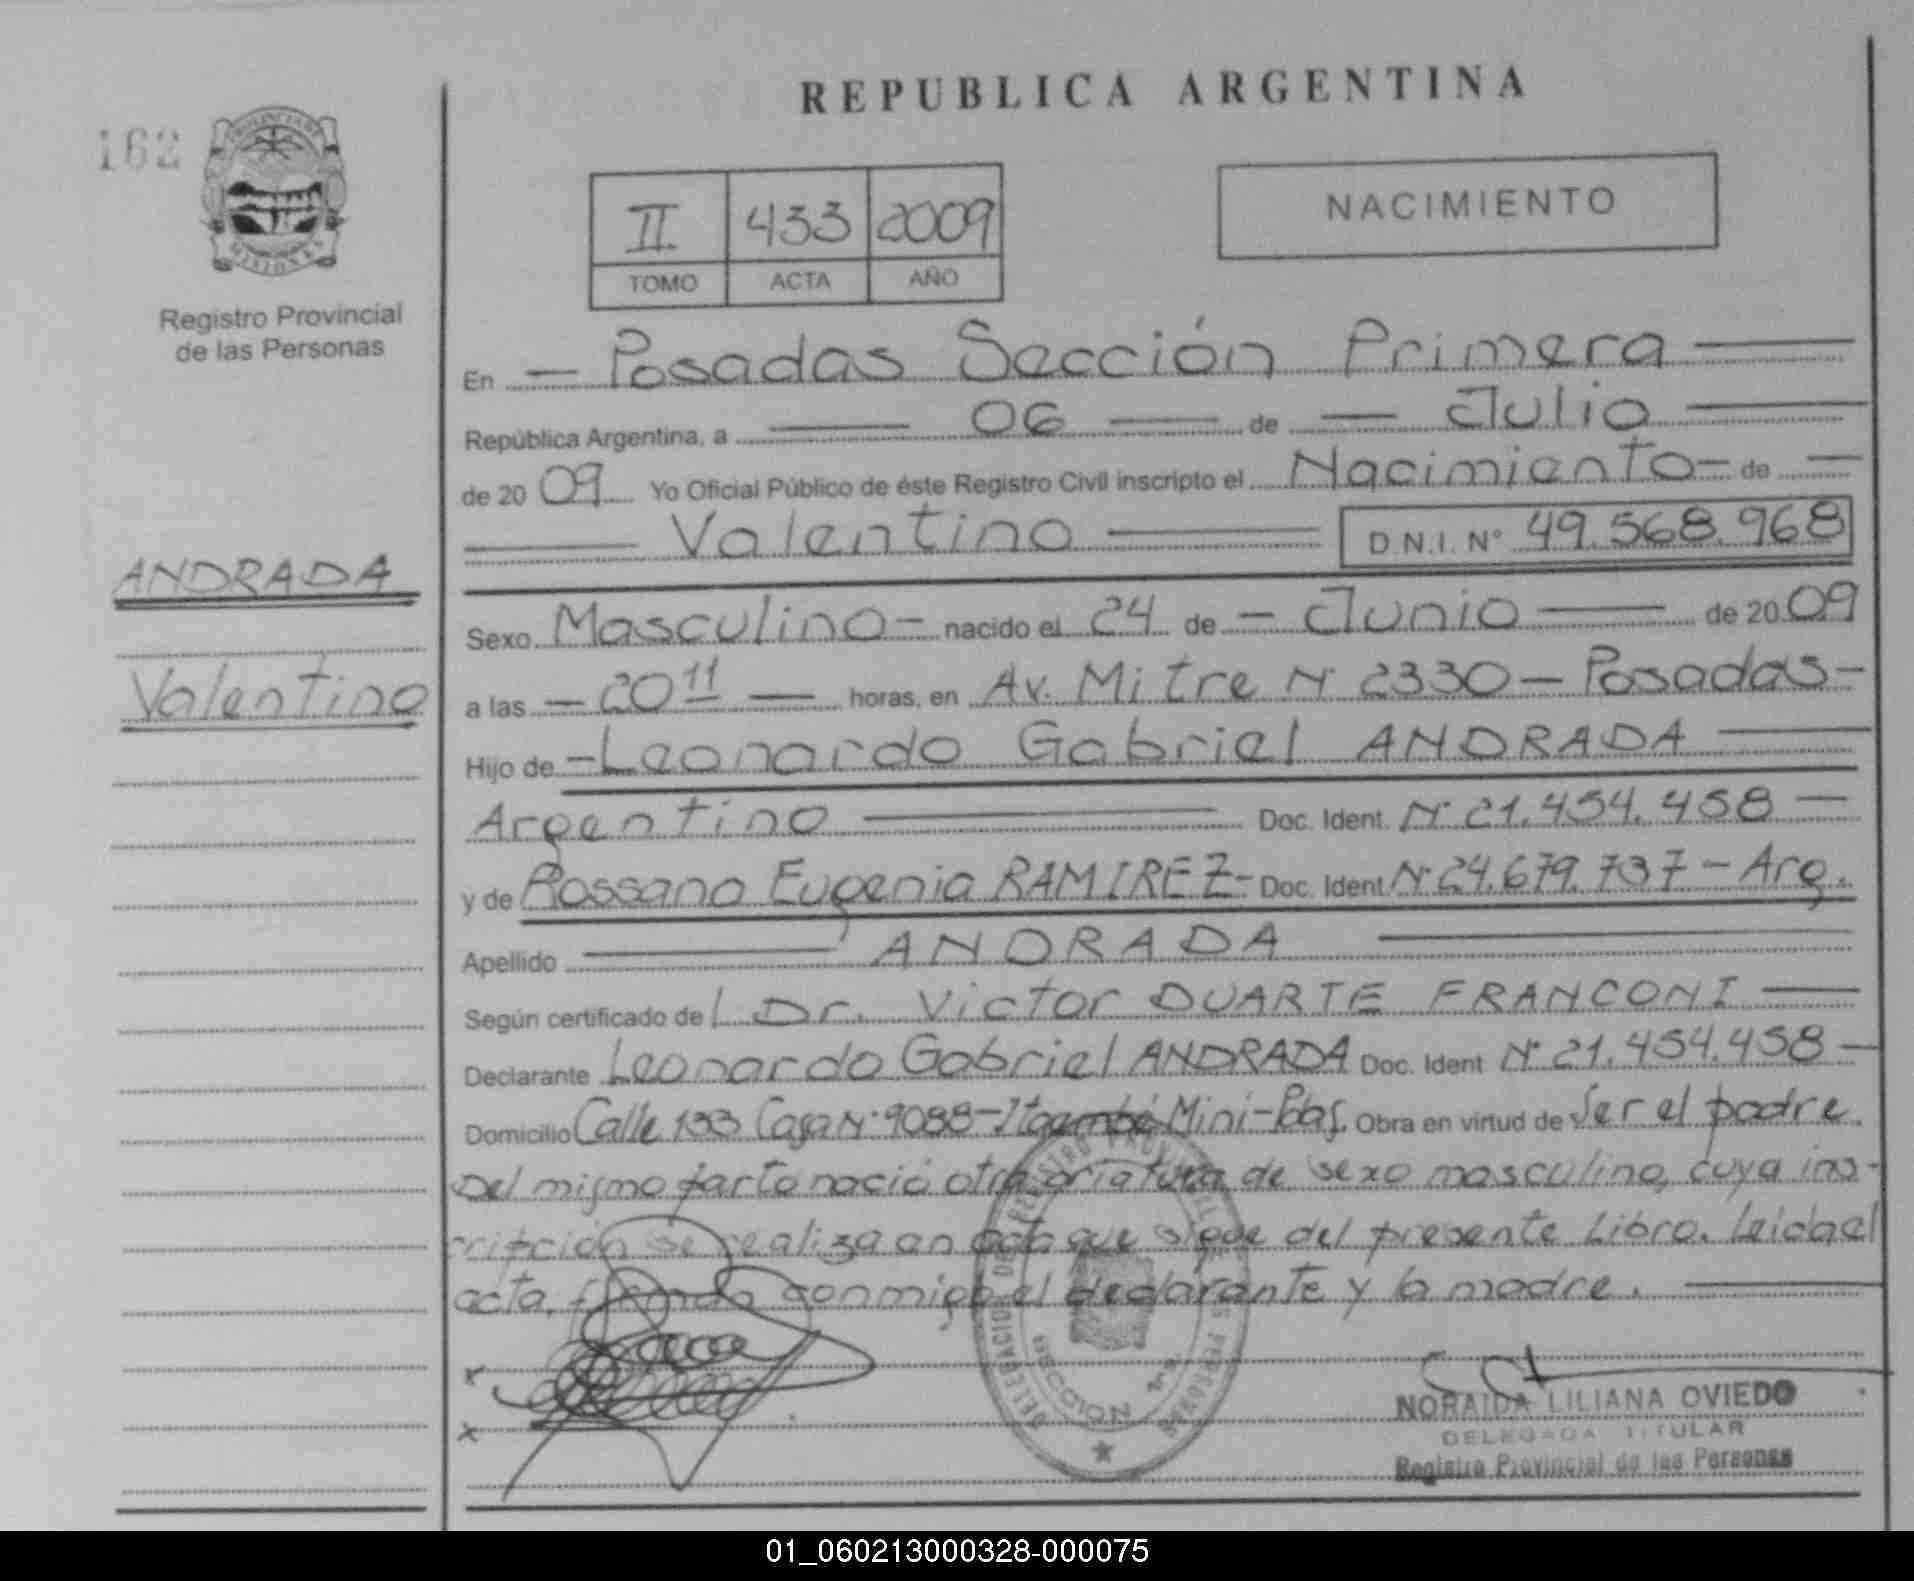 REPUBLICA ARGENTINA
162
PROVINCIA DE
MISIONES
Registro Provincial
de las Personas
II 433 2009
TOMO ACTA AÑO
NACIMIENTO
En — Posadas Sección Primera —
República Argentina, a — 06 — de — Julio —
de 20 09 Yo Oficial Público de éste Registro Civil inscripto el Nacimiento — de —
— Valentino — D.N.I. N° 49.568.968
ANDRADA
Valentino
Sexo Masculino — nacido el 24 de — Junio — de 20 09
a las — 20 11 — horas, en Av. Mitre N° 2330 — Posadas —
Hijo de — Leonardo Gabriel ANDRADA —
Argentino — Doc. Ident. N° 21.454.458 —
y de Rossana Eugenia RAMIREZ — Doc. Ident N° 24.679.737 — Arg.
Apellido — ANDRADA —
Según certificado de l Dr. Victor DUARTE FRANCONI —
Declarante Leonardo Gabriel ANDRADA Doc. Ident N° 21.454.458 —
Domicilio Calle 133 Casa N° 9088 — Itaembé Mini — Pdas. Obra en virtud de Ser el padre.
Del mismo parto nació otra criatura de sexo masculino, cuya ins-
cripción se realiza en acta que sigue del presente Libro. Leida el
acta, firman conmigo el declarante y la madre. —
x
x
DELEGACION DEL REGISTRO PROVINCIAL DE LAS PERSONAS
SECCION 1ra.
NORAIDA LILIANA OVIEDO
DELEGADA TITULAR
Registro Provincial de las Personas
01_060213000328-000075